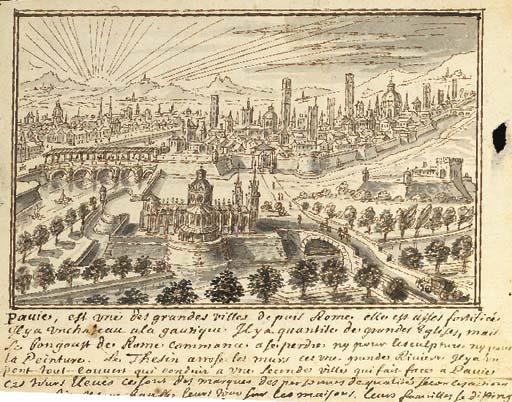 Pavie, est vne des grandes villes depuis Rome, elle est asses fortifiée
il y a vn chateau a la gautique. Il y a quantité de grandes Eglises, mais
le bongoust de Rome commance a se perdre ny pour la sculpture, ny pour
la Peinture. Le Thesin arrose les murs cet vne grandes Riviere Il y a vn
pont tout couvert qui conduit a vne secondes villes qui fait face a Pavie
ces tours sont des marques des personnes de qualité
leurs tour sur les maisons, leurs familles se disting